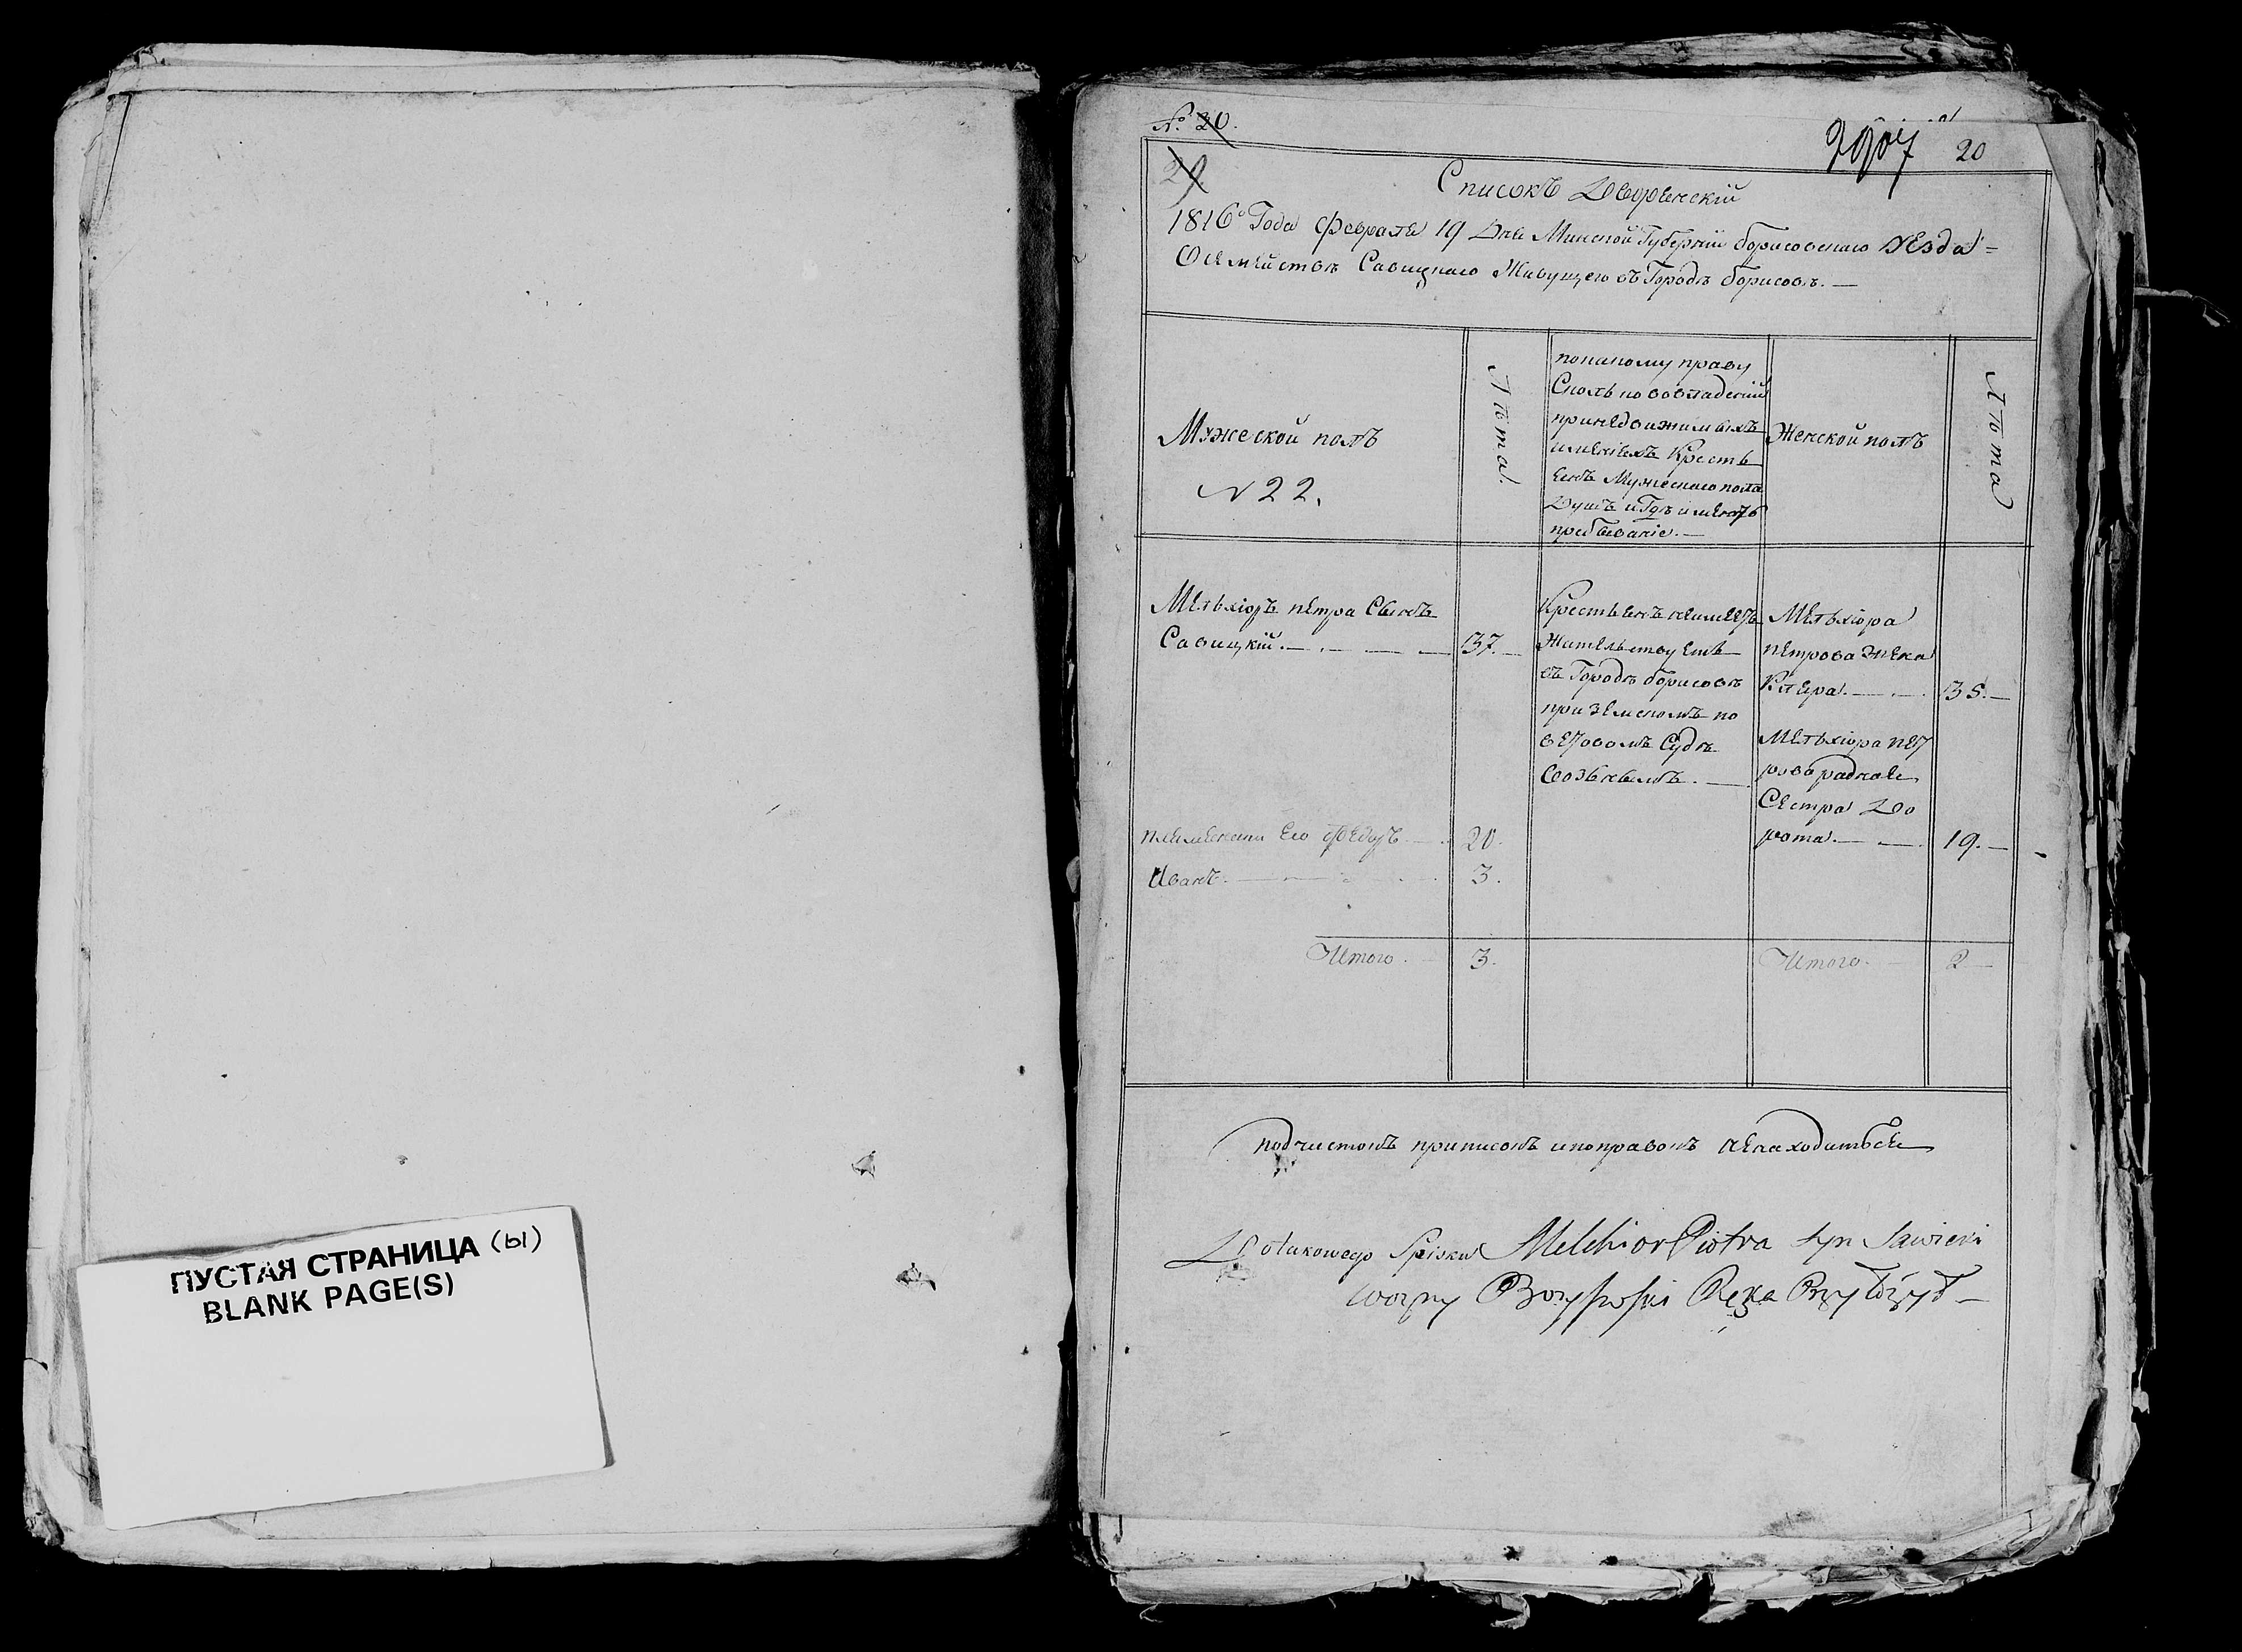 ПУСТАЯ СТРАНИЦА (ы)
BLANK PAGE(S)
№ 20.
20
29
Списокъ Дворенскiй
1816º Года Февраля 19 Дня Минской Губернiи борисовскаго уезда =
О семействѣ Савицкаго Живущего въ Городѣ борисовѣ. —
Мужеской полъ
№ 22.
Лѣта
покакому праву
Сколь по вовладенiи
принедвижимыхъ
имѣнiехъ Кресть
енъ Мужескаго пола
Душъ и Гдѣ имеютъ
пребыванiе. —
Женской полъ
Лѣта
Мельхiоръ петра Сынъ
Савицкiй. — 37. —
Крестьенъ неимеетъ
Жительствуетъ
въ Городѣ борисовѣ
при Земскомъ по
ветовомъ Судѣ
Возьнымъ. —
Мельхiора
петрова жена
Клера. — 35. —
Мельхiора пет
рова раднае
Сестра До
рота. — 19. —
племеники Его Федоръ — 20.
Иванъ. — 3.
Итого. 3.
Итого. — 2 —
подчистокъ приписокъ ипоправокъ ненаходитьсе
Do takowego Spisku Melchior Piotra syn Sawicki
Wozny Borysowski Ręką